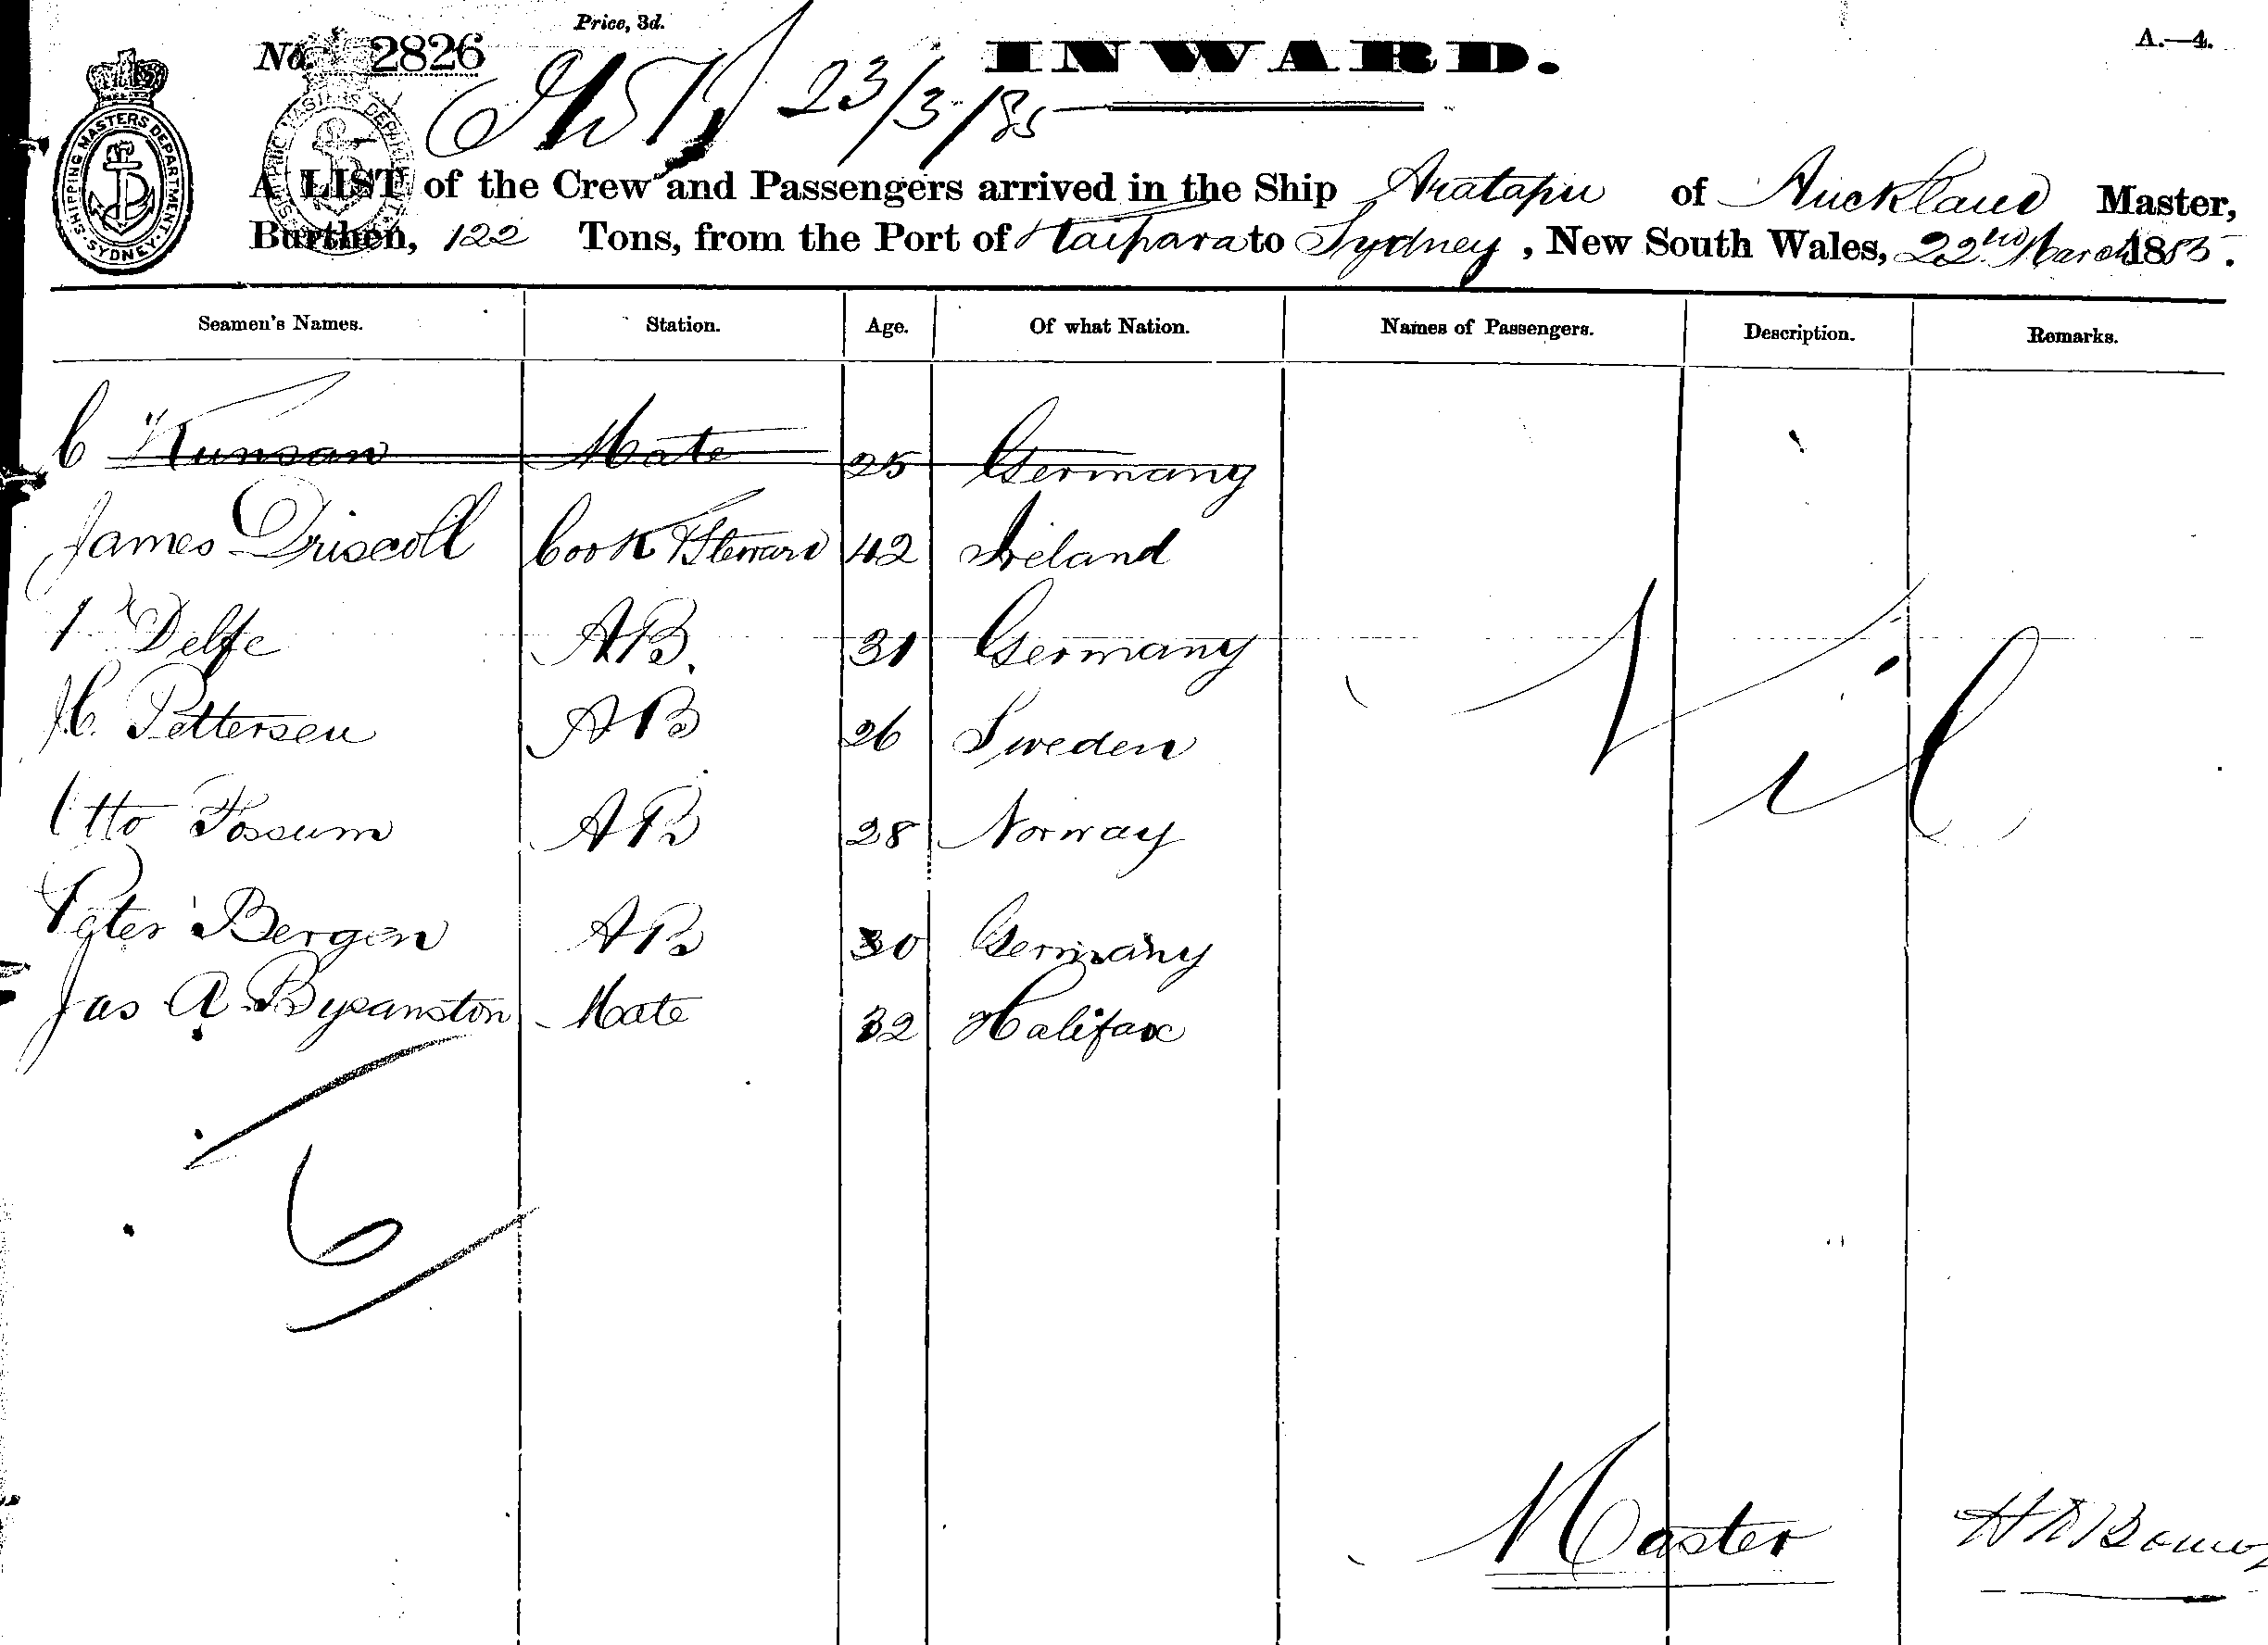 Price, 3d.
No. 2826
INWARD.
A.—4.
23/3/85
SHIPPING MASTERS DEPARTMENT. SYDNEY.
A LIST of the Crew and Passengers arrived in the Ship Aratapu of Auckland Master,
Burthen, 122 Tons, from the Port of Kaipara to Sydney, New South Wales, 22nd March 1885.
Seamen's Names. Station. Age. Of what Nation. Names of Passengers. Description. Remarks.
C Mate 25 Germany
James Driscoll Cook & Steward 42 Ireland
Delfe AB. 31 Germany
Pettersen AB 26 Sweden
Otto Fossum AB 28 Norway
Peter Bergen AB 30 Germany
Jas A Mate 32 Halifax
Nil
6
Master